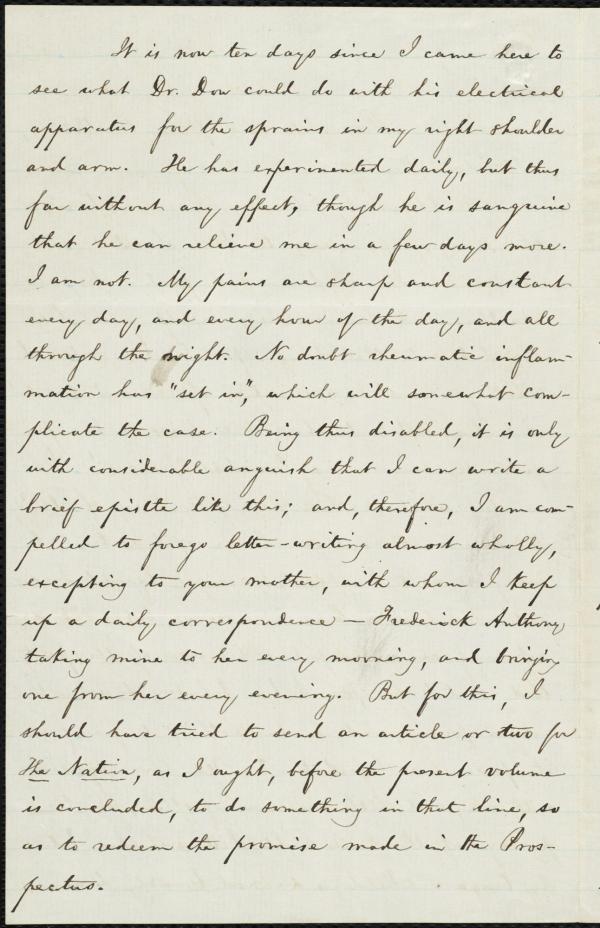 It is now ten days since I came here to
see what Dr. Dow could do with his electrical
apparatus for the sprains in my right shoulder
and arm. He has experimented daily, but thus
far without any effect, though he is sanguine
that he can relieve me in a few days more.
I am not. My pains are sharp and constant
every day, and every hour of the day, and all
through the night. No doubt rheumatic inflam-
mation has "set in", which will somewhat com-
plicate the case. Being thus disabled, it is only
with considerable anguish that I can write a
brief epistle like this; and, therefore, I am com-
pelled to forego letter-writing almost wholly,
excepting to your mother, with whom I keep
up a daily correspondence — Frederick Anthony
taking mine to her every morning, and bringing
one from her every evening. But for this, I
should have tried to send an article or two for
The Nation, as I ought, before the present volume
is concluded, to do something in that line, so
as to redeem the promise made in the Pros-
pectus.